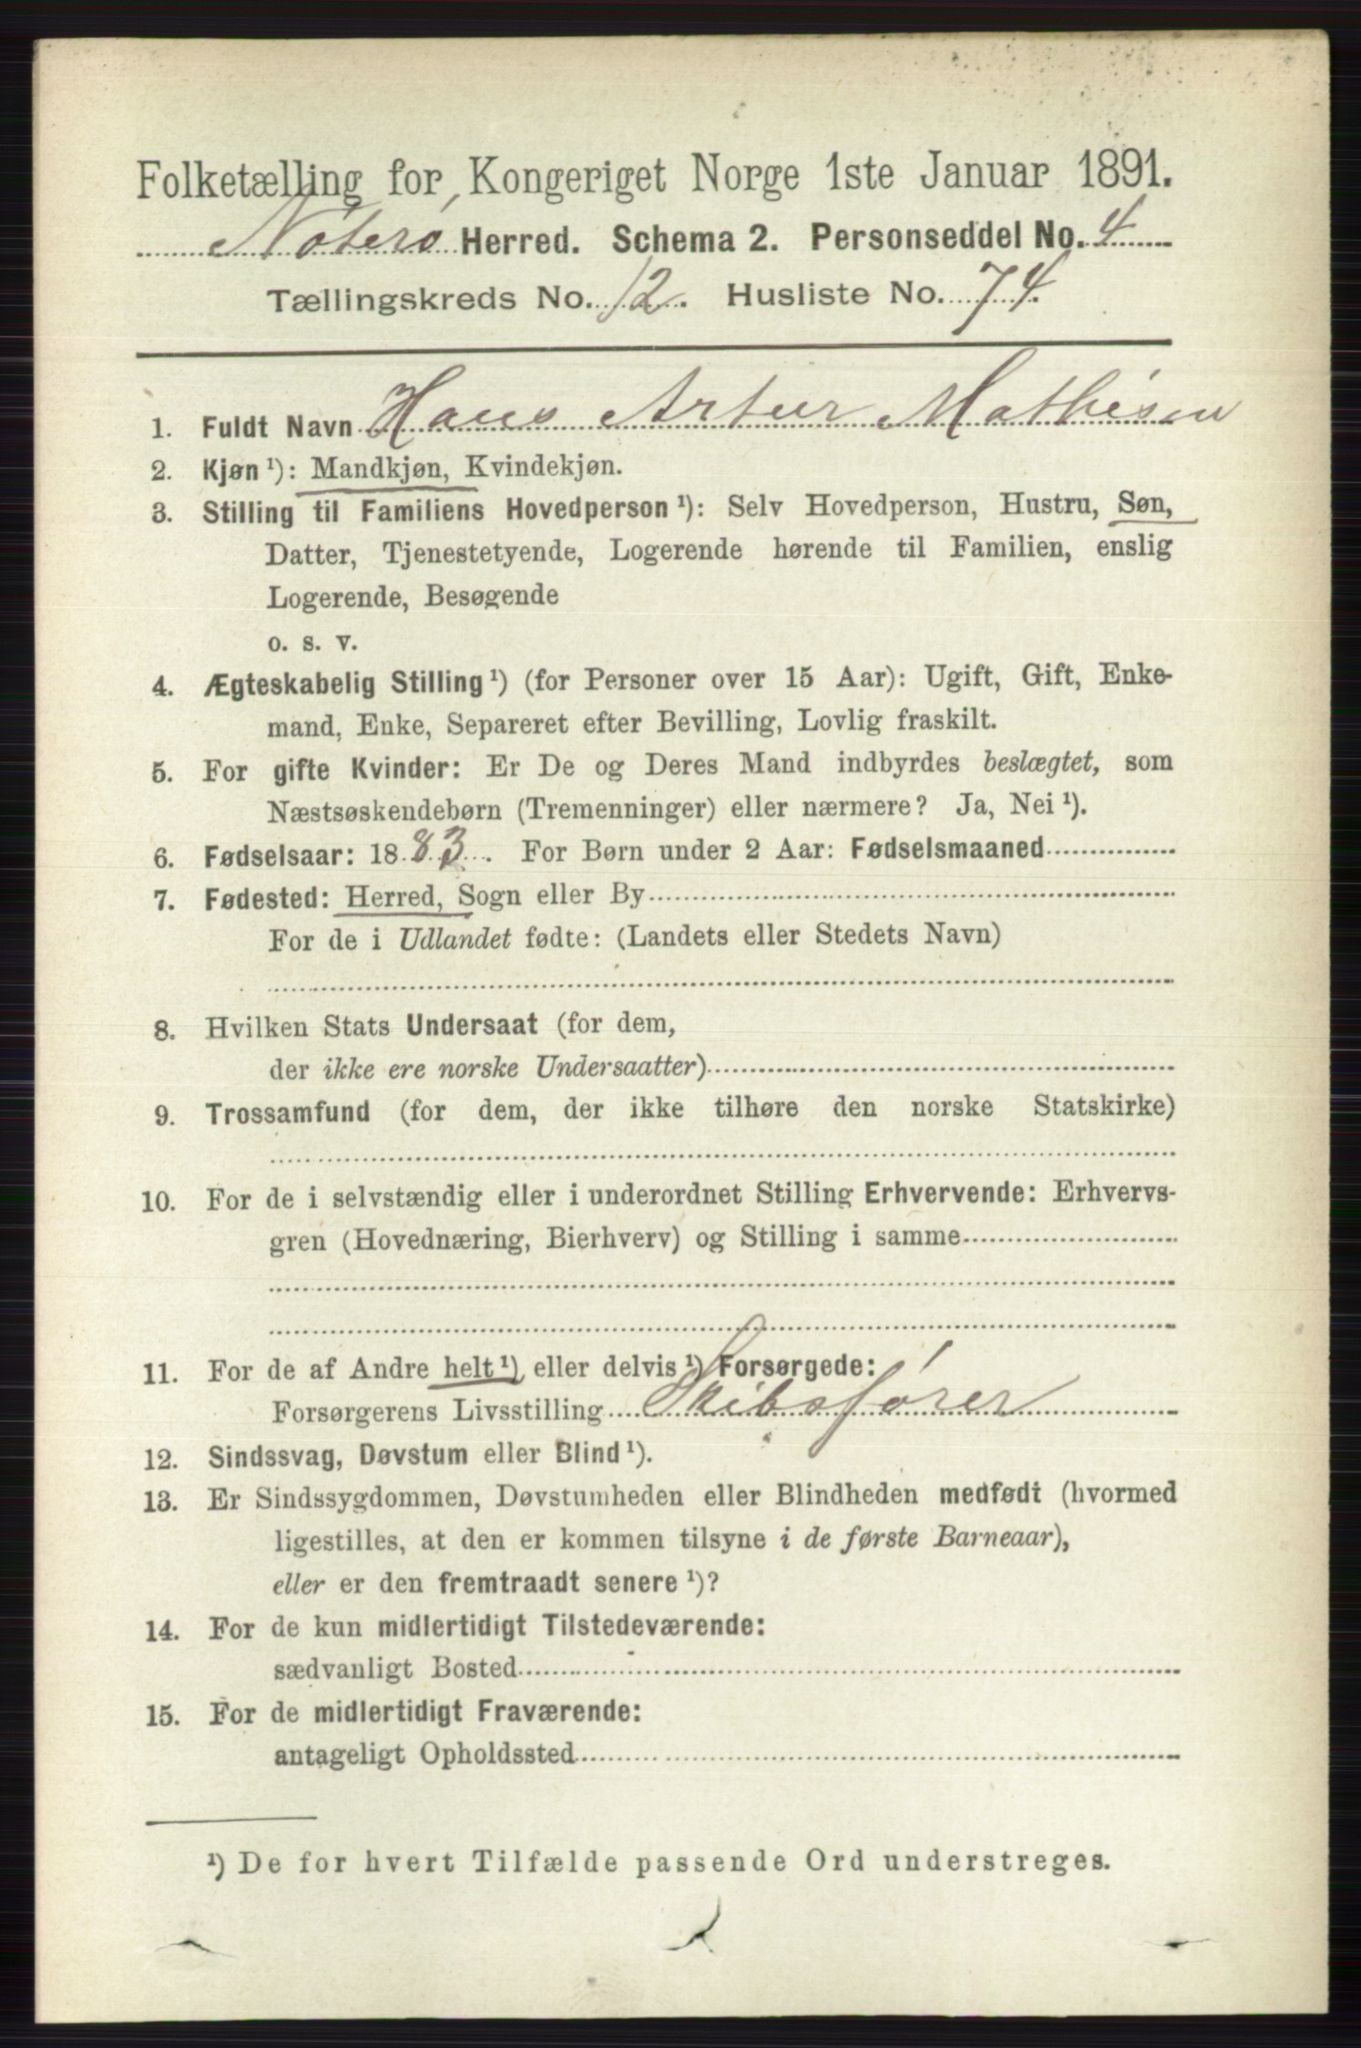 Folketælling for Kongeriget Norge 1ste Januar 1891.
Nøterø Herred. Schema 2. Personseddel No. 4
Tællingskreds No. 12. Husliste No. 74.
1. Fuldt Navn Hans Artur Mathisen
2. Kjøn ¹): Mandkjøn, Kvindekjøn.
3. Stilling til Familiens Hovedperson ¹): Selv Hovedperson, Hustru, Søn,
Datter, Tjenestetyende, Logerende hørende til Familien, enslig
Logerende, Besøgende
o. s. v.
4. Ægteskabelig Stilling ¹) (for Personer over 15 Aar): Ugift, Gift, Enke-
mand, Enke, Separeret efter Bevilling, Lovlig fraskilt.
5. For gifte Kvinder: Er De og Deres Mand indbyrdes beslægtet, som
Næstsøskendebørn (Tremenninger) eller nærmere? Ja, Nei ¹).
6. Fødselsaar: 1883. For Børn under 2 Aar: Fødselsmaaned
7. Fødested: Herred, Sogn eller By
For de i Udlandet fødte: (Landets eller Stedets Navn)
8. Hvilken Stats Undersaat (for dem,
der ikke ere norske Undersaatter)
9. Trossamfund (for dem, der ikke tilhøre den norske Statskirke)
10. For de i selvstændig eller i underordnet Stilling Erhvervende: Erhvervs-
gren (Hovednæring, Bierhverv) og Stilling i samme
11. For de af Andre helt ¹) eller delvis ¹) Forsørgede:
Forsørgerens Livsstilling Skibsfører
12. Sindssvag, Døvstum eller Blind ¹).
13. Er Sindssygdommen, Døvstumheden eller Blindheden medfødt (hvormed
ligestilles, at den er kommen tilsyne i de første Barneaar),
eller er den fremtraadt senere ¹)?
14. For de kun midlertidigt Tilstedeværende:
sædvanligt Bosted
15. For de midlertidigt Fraværende:
antageligt Opholdssted
¹) De for hvert Tilfælde passende Ord understreges.